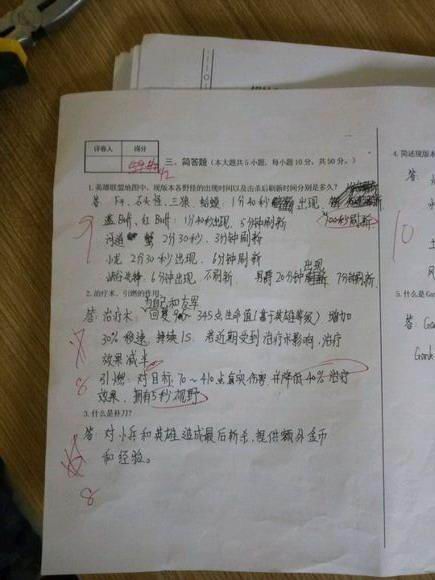 评卷人 得分
三、简答题（本大题共5小题，每小题10分，共50分。）
1. 英雄联盟地图中，现版本各野怪的出现时间以及击杀后刷新时间分别是多久？
答 F4、石头怪、三狼、蛤蟆：1分40秒 出现，
100秒刷新
蓝Buff、红Buff：1分40秒出现，5分钟刷新
河道蟹 2分30秒，3分钟刷新
小龙 2分30秒出现，6分钟刷新
峡谷先锋，6分钟出现，不刷新 20分钟 出现 7分钟刷新
9
2. 治疗术、引燃的作用
与自己和友军
答 治疗术：回复90—345点生命值（基于英雄等级）增加
30%移速，持续1S. 若近期受到治疗术影响，治疗
效果减半
引燃：对目标70～410点真实伤害 并降低40%治疗
效果，拥有5秒视野
8
3. 什么是补刀？
答：对小兵和英雄造成最后斩杀，提供额外金币
和经验。
8
4. 简述现版本
答：
10
5. 什么是G
答：